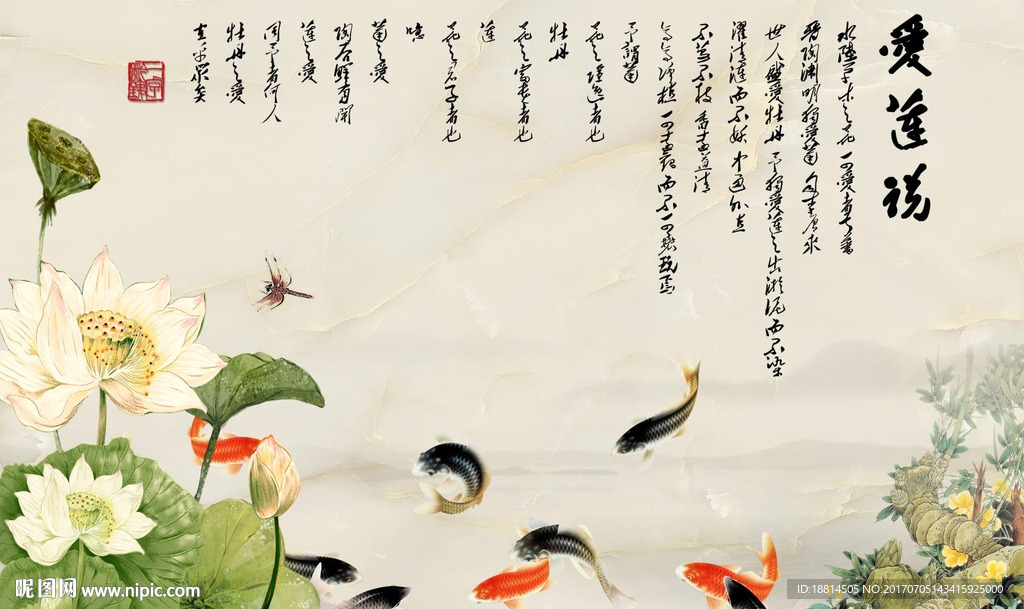 愛蓮说
水陸草木之花 可愛者甚蕃
晋陶渊明独愛菊 自李唐来
世人盛愛牡丹 予独愛蓮之出淤泥而不染
濯清漣而不妖 中通外直
不蔓不枝 香遠益清
亭亭净植 可遠觀而不可褻玩焉
予謂菊
花之隱逸者也
牡丹
花之富貴者也
蓮
花之君子者也
噫
菊之愛
陶后鲜有闻
蓮之愛
同予者何人
牡丹之愛
宜乎众矣
昵图网 www.nipic.com
ID:18814505 NO:20170705143415925000